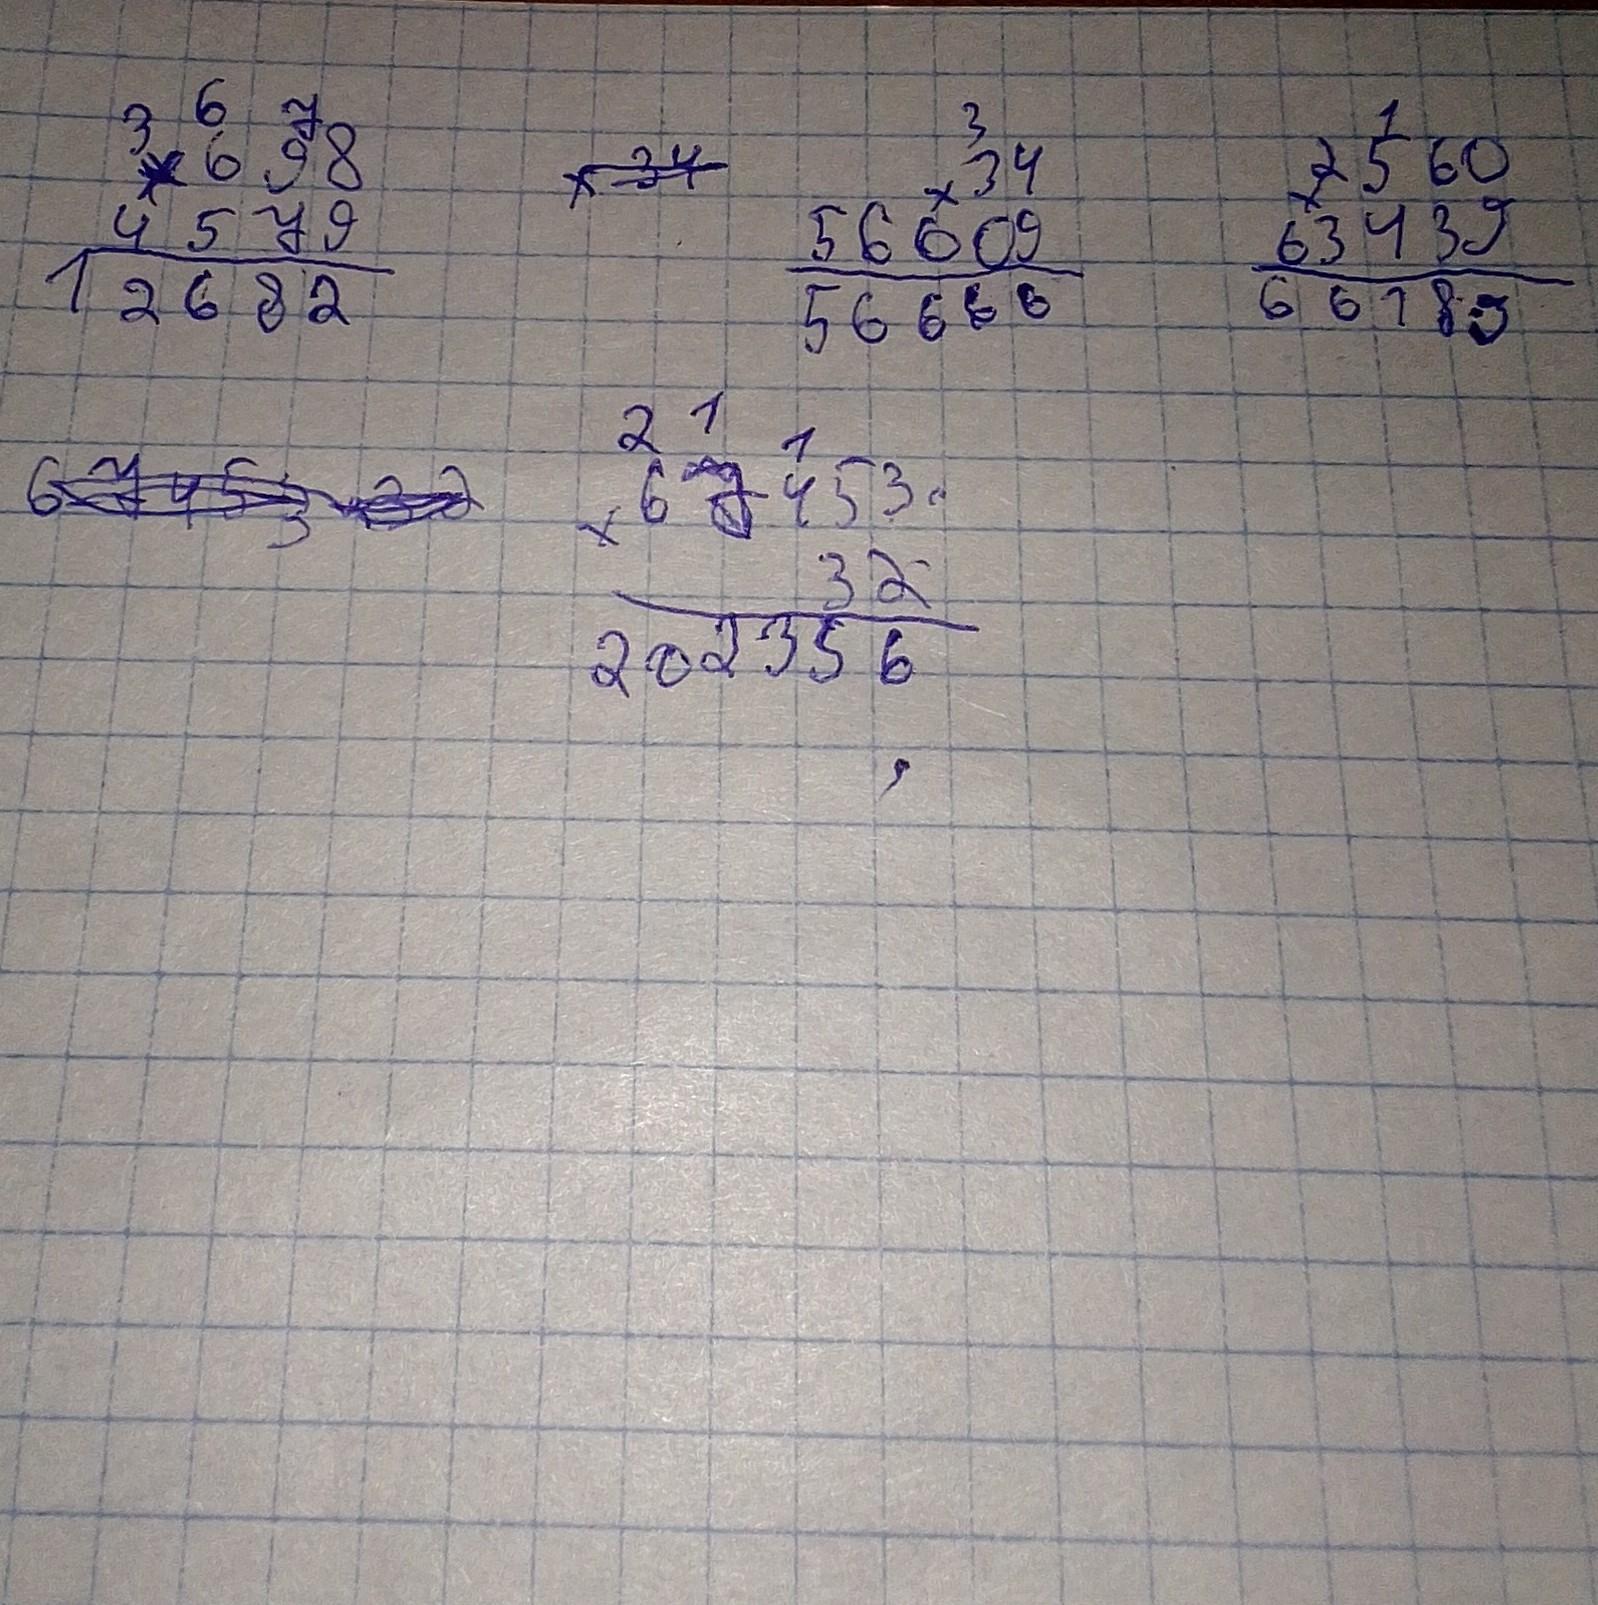 3 6 7
× 698
4579
12682
× 34
3
× 34
56609
56666
1
2560
×
63439
66189
67453 × 32
2 1 1
× 67453
32
202356
,